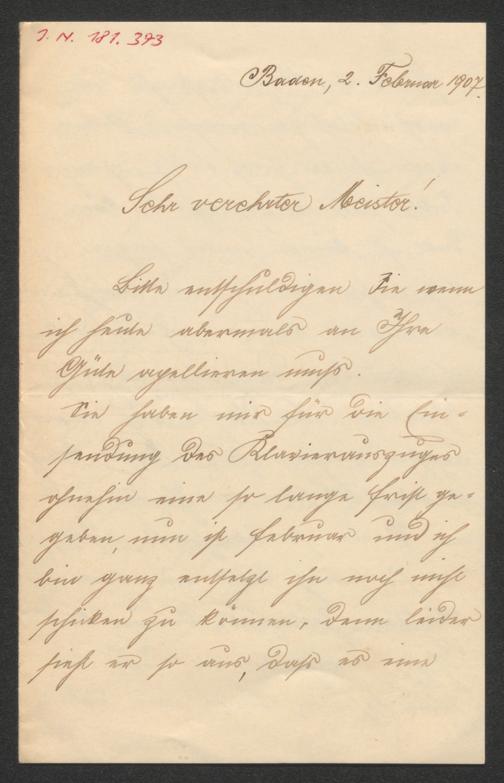 J. N. 181.373
Baden, 2. Februar 1907.
Sehr verehrter Meister!
Bitte entschuldigen Sie wenn
ich heute abermals an Ihre
Güte apellieren muß.
Sie haben mir für die Ein-
sendung des Klavierauszuges
ohnehin eine so lange Frist ge-
geben, nun ist Februar und ich
bin ganz entsetzt ihn noch nicht
schicken zu können, denn leider
sieht er so aus, daß es eine